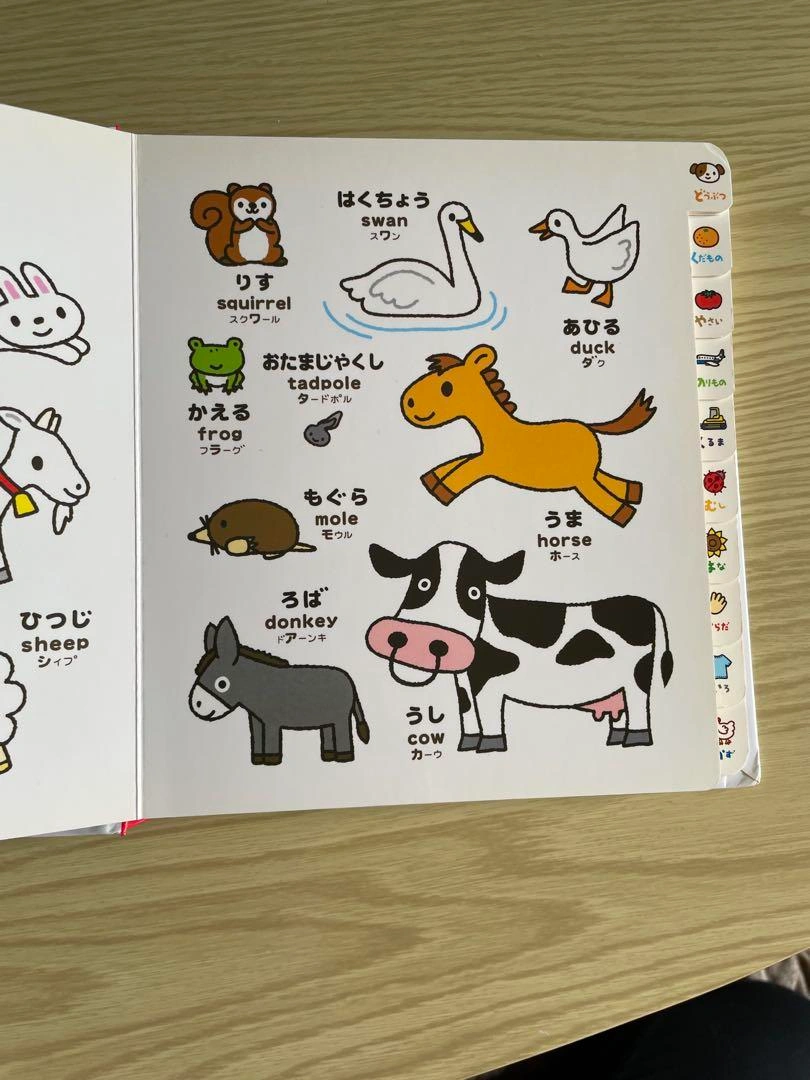 ひつじ
sheep
シィプ
りす
squirrel
スクワール
はくちょう
swan
スワン
あひる
duck
ダク
かえる
frog
フラーグ
おたまじゃくし
tadpole
タードポル
もぐら
mole
モウル
うま
horse
ホース
ろば
donkey
ドアーンキ
うし
cow
カーウ
どうぶつ
くだもの
やさい
のりもの
くるま